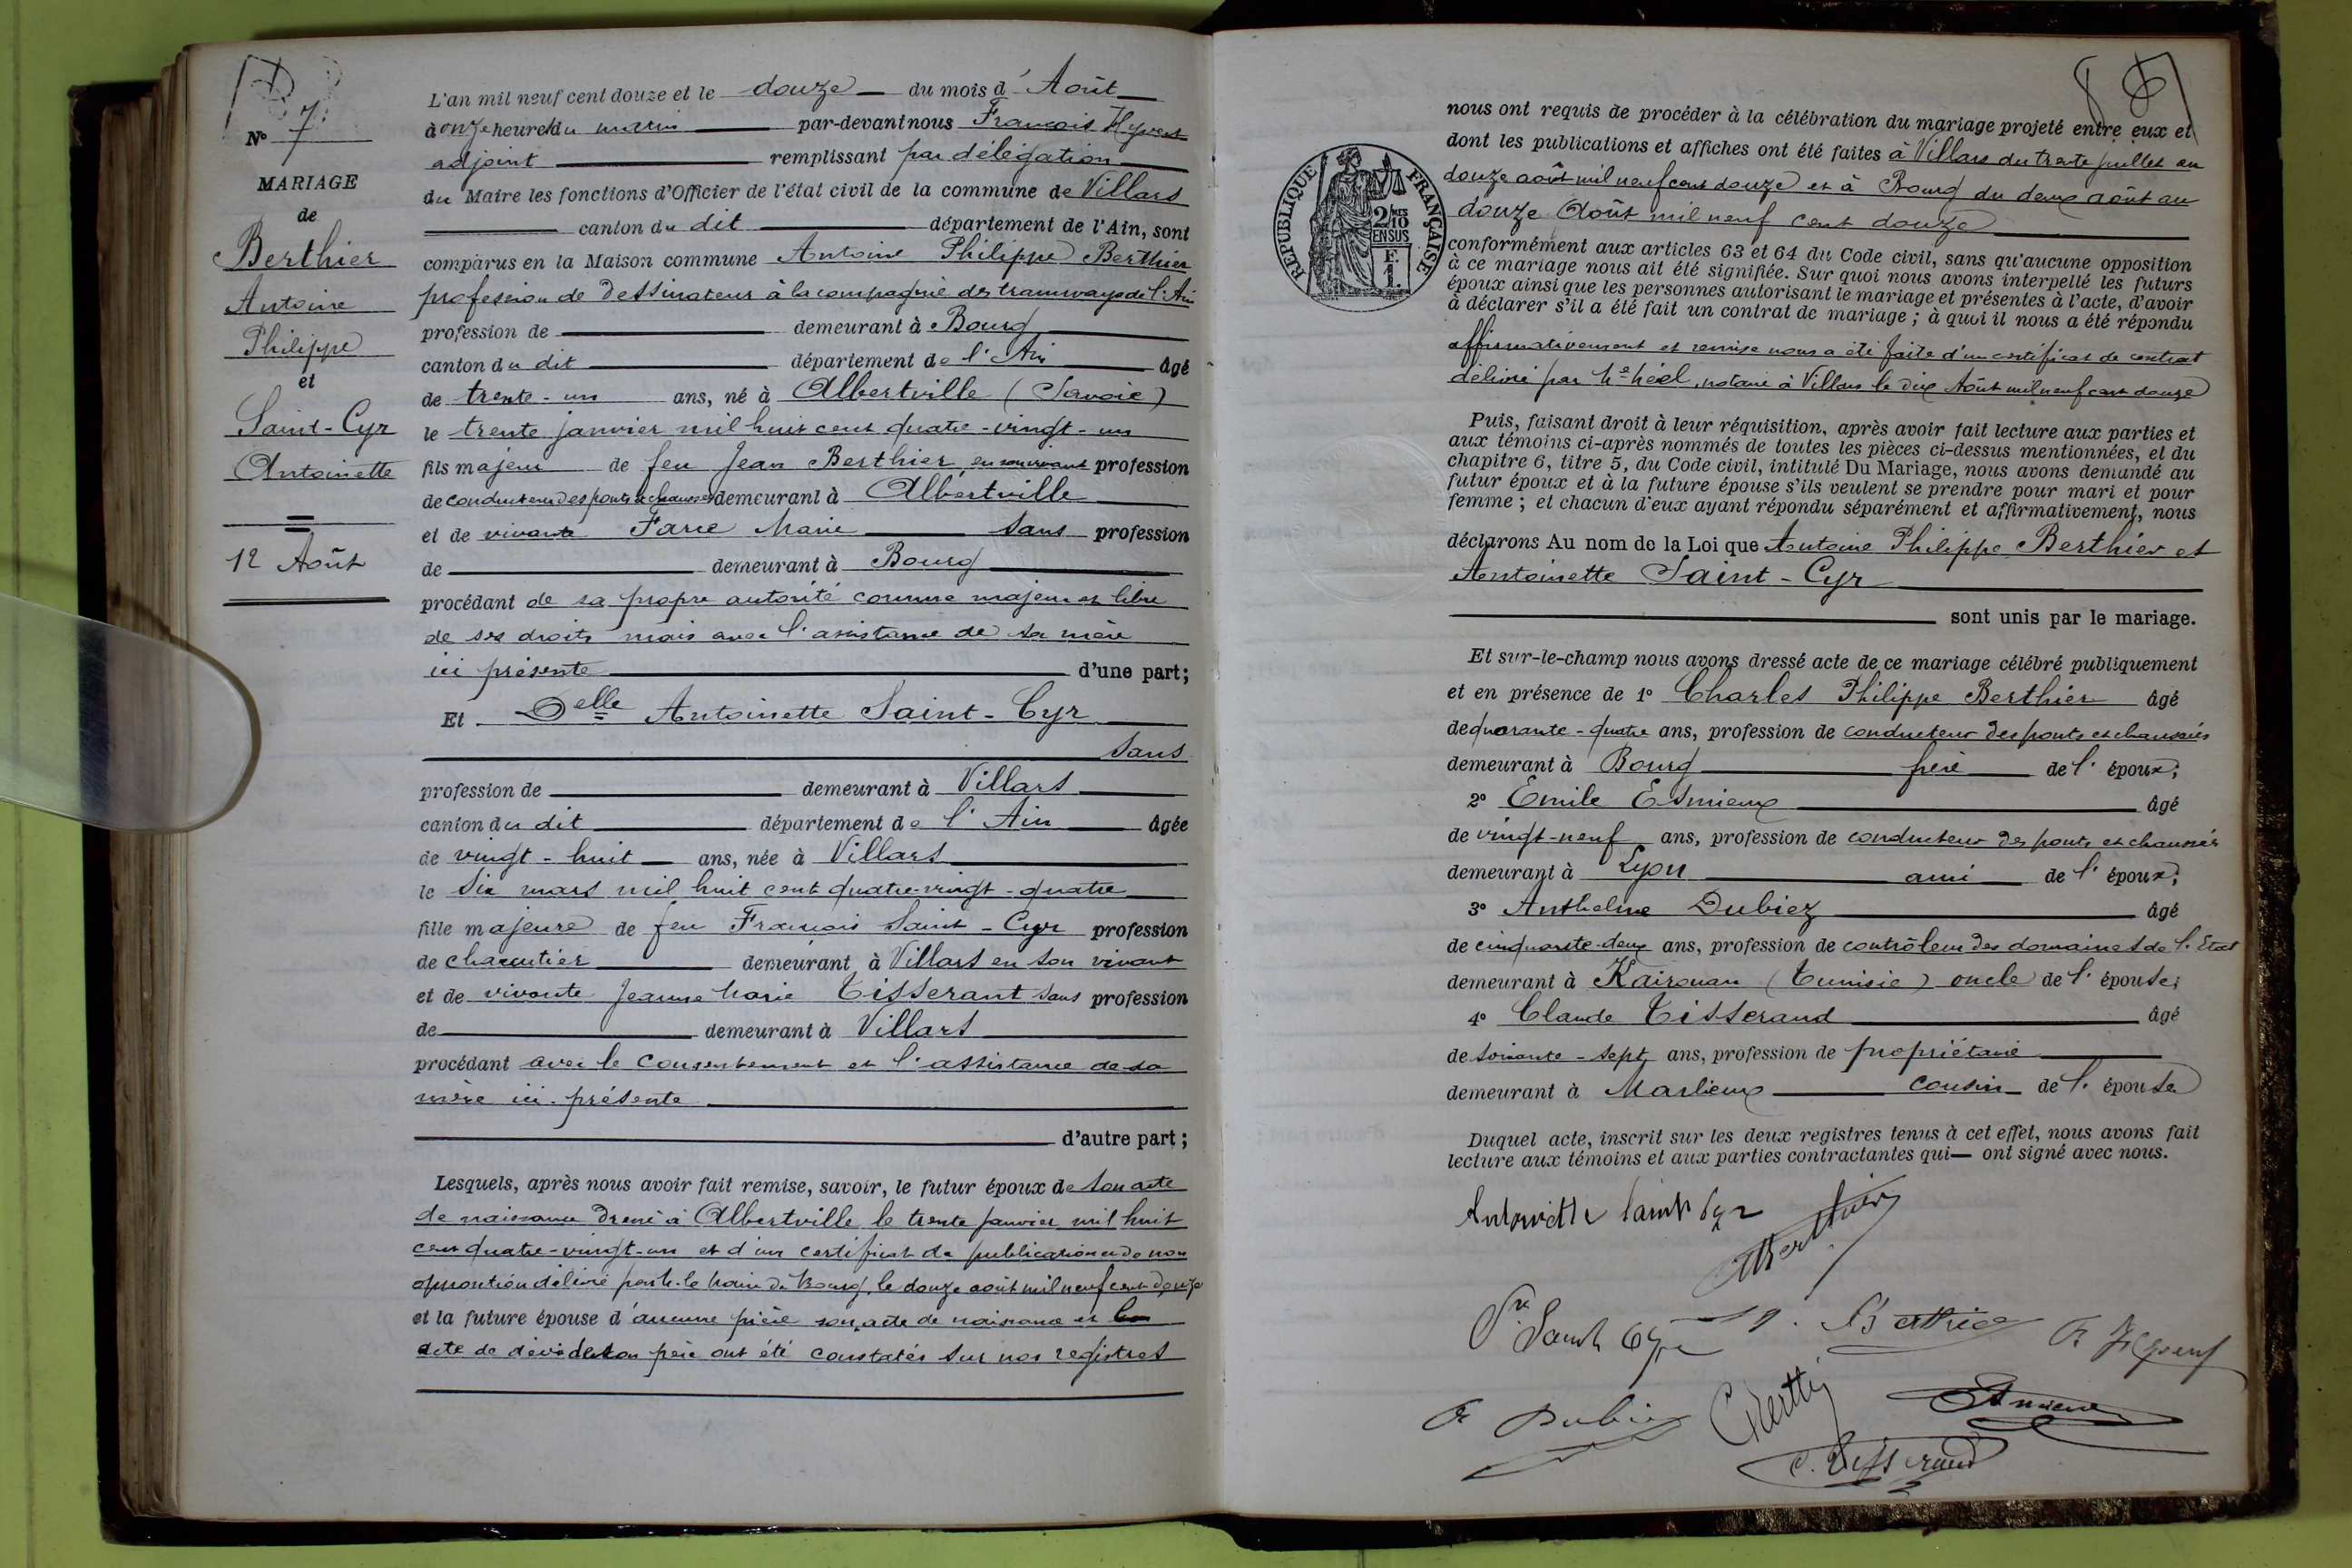 N° 7
MARIAGE
de
Berthier
Antoine
Philippe
et
Saint-Cyr
Antoinette
12 Août
L'an mil neuf cent douze et le douze du mois d'Août
à onze heures du matin par-devant nous François Hyvert
adjoint remplissant par délégation
du Maire les fonctions d'Officier de l'état civil de la commune de Villars
canton du dit département de l'Ain, sont
comparus en la Maison commune Antoine Philippe Berthier
profession de dessinateur à la compagnie des tramways de l'Ain
profession de demeurant à Bourg
canton du dit département de l'Ain âgé
de trente-un ans, né à Albertville (Savoie)
le trente janvier mil huit cent quatre-vingt-un
fils majeur de feu Jean Berthier, en son vivant profession
de conducteur des ponts et chaussées demeurant à Albertville
et de vivante Farce Marie sans profession
de demeurant à Bourg
procédant de sa propre autorité comme majeur et libre
de ses droits mais avec l'assistance de sa mère
ici présente d'une part;
Et Delle Antoinette Saint-Cyr
sans
profession de demeurant à Villars
canton du dit département de l'Ain âgée
de vingt-huit ans, née à Villars
le six mars mil huit cent quatre-vingt-quatre
fille majeure de feu François Saint-Cyr profession
de charcutier demeurant à Villars en son vivant
et de vivante Jeanne Marie Tisserant sans profession
de demeurant à Villars
procédant avec le consentement et l'assistance de sa
mère ici présente
d'autre part;
Lesquels, après nous avoir fait remise, savoir, le futur époux de son acte
de naissance dressé à Albertville le trente janvier mil huit
cent quatre-vingt-un et d'un certificat de publication et de non
opposition délivré par M. le Maire de Bourg, le douze août mil neuf cent douze
et la future épouse d'aucune pièce son acte de naissance et
acte de décès de son père ont été constatés sur nos registres
8
nous ont requis de procéder à la célébration du mariage projeté entre eux et
dont les publications et affiches ont été faites à Villars du trente juillet au
douze août mil neuf cent douze et à Bourg du deux août au
douze Août mil neuf cent douze
RÉPUBLIQUE FRANÇAISE
2/10
EN SUS
F.
1.
conformément aux articles 63 et 64 du Code civil, sans qu'aucune opposition
à ce mariage nous ait été signifiée. Sur quoi nous avons interpellé les futurs
époux ainsi que les personnes autorisant le mariage et présentes à l'acte, d'avoir
à déclarer s'il a été fait un contrat de mariage; à quoi il nous a été répondu
affirmativement et remise nous a été faite d'un certificat de contrat
délivré par Me notaire à Villars le dix Août mil neuf cent douze
Puis, faisant droit à leur réquisition, après avoir fait lecture aux parties et
aux témoins ci-après nommés de toutes les pièces ci-dessus mentionnées, et du
chapitre 6, titre 5, du Code civil, intitulé Du Mariage, nous avons demandé au
futur époux et à la future épouse s'ils veulent se prendre pour mari et pour
femme; et chacun d'eux ayant répondu séparément et affirmativement, nous
déclarons Au nom de la Loi que Antoine Philippe Berthier et
Antoinette Saint-Cyr
sont unis par le mariage.
Et sur-le-champ nous avons dressé acte de ce mariage célébré publiquement
et en présence de 1° Charles Philippe Berthier âgé
de quarante-quatre ans, profession de conducteur des ponts et chaussées
demeurant à Bourg frère de l'époux;
2° Emile Esmieux âgé
de vingt-neuf ans, profession de conducteur des ponts et chaussées
demeurant à Lyon ami de l'époux;
3° Anthelme Dubiez âgé
de cinquante-deux ans, profession de contrôleur des domaines de l'Etat
demeurant à Kairouan (Tunisie) oncle de l'épouse;
4° Claude Tisserand âgé
de soixante-sept ans, profession de propriétaire
demeurant à Marlieux cousin de l'épouse
Duquel acte, inscrit sur les deux registres tenus à cet effet, nous avons fait
lecture aux témoins et aux parties contractantes qui ont signé avec nous.
Antoinette Saint Cyr
Berthier
Ve Saint Cyr
Berthier
F. Hyvert
A Dubiez
Esmieux
C. Tisserand